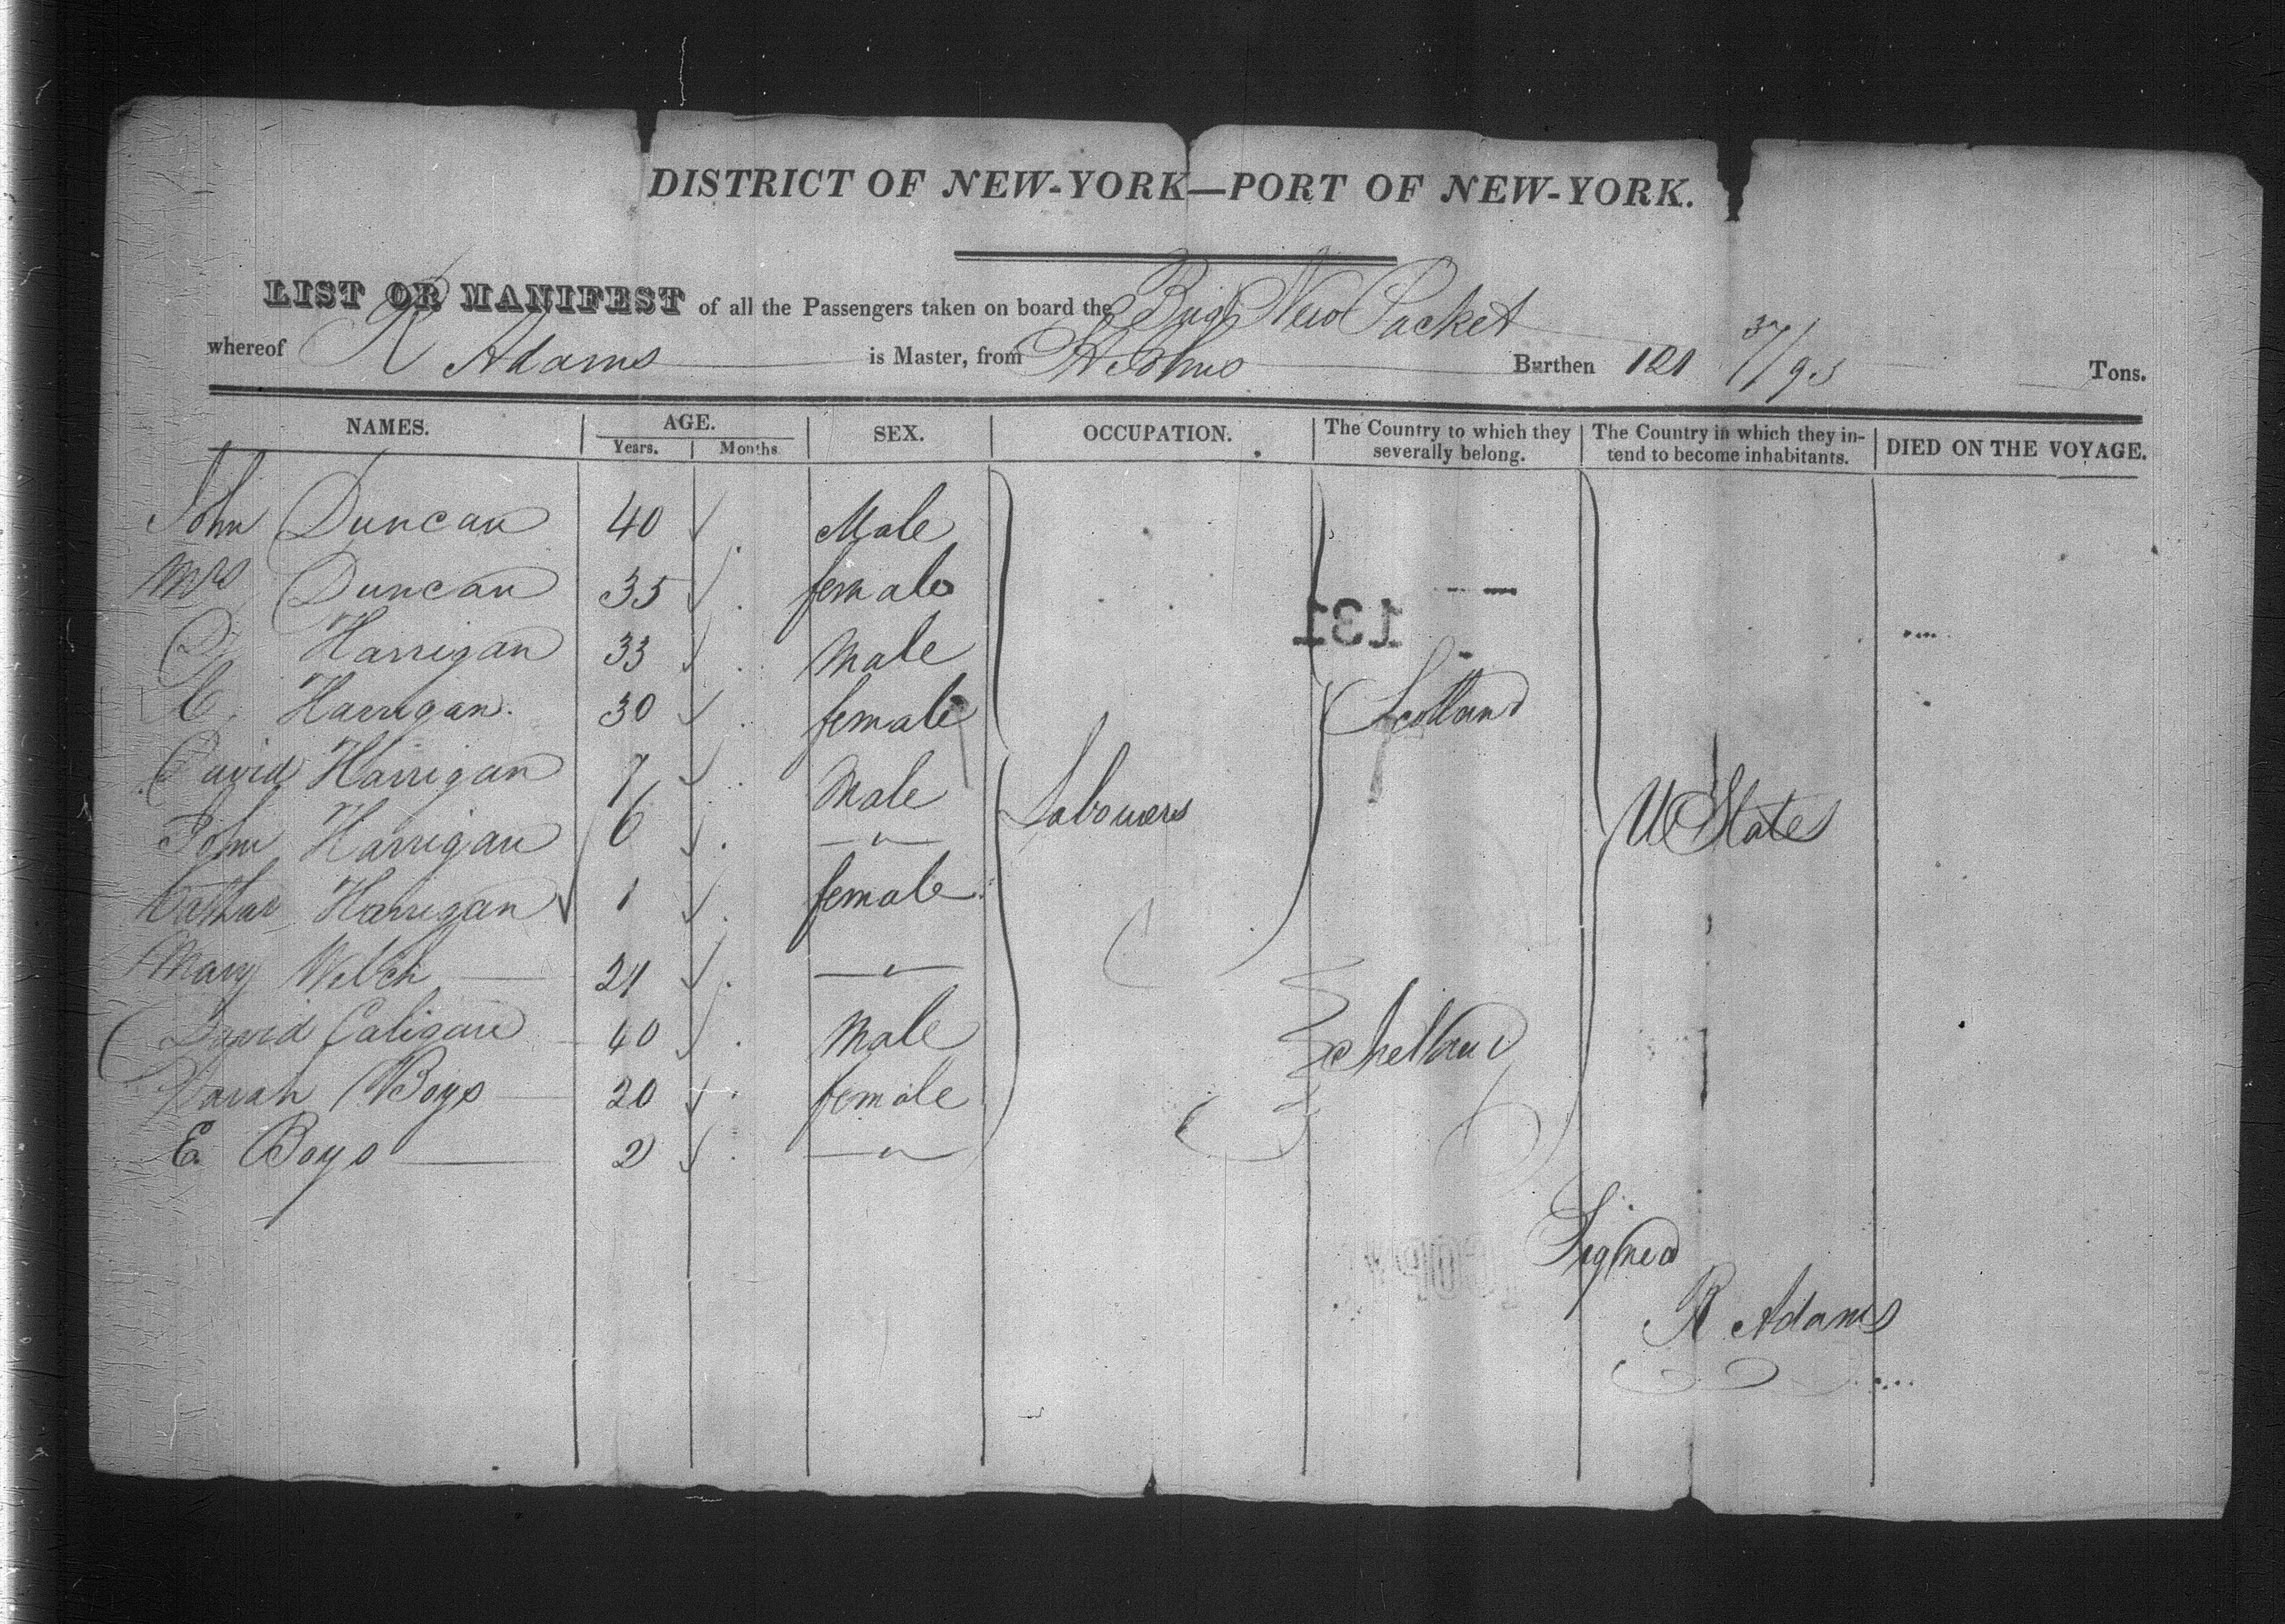 DISTRICT OF NEW-YORK—PORT OF NEW-YORK.
LIST OR MANIFEST of all the Passengers taken on board the Brig New Packet
whereof R Adams is Master, from St Johns Burthen 121 37/95 Tons.
NAMES. AGE. SEX. OCCUPATION. The Country to which they severally belong. The Country in which they intend to become inhabitants. DIED ON THE VOYAGE.
Years. Months
John Duncan 40 Male
Mrs Duncan 35 female
Harrigan 33 Male
C. Harrigan. 30 female Scotland
David Harrigan 7 Male
John Harrigan 6 " Labourers U States
Cathar Harrigan 1 female
Mary Welch 21 "
David Caligan 40 Male
Sarah Boys 20 female
E. Boys 2 "
131
Signed
R Adams